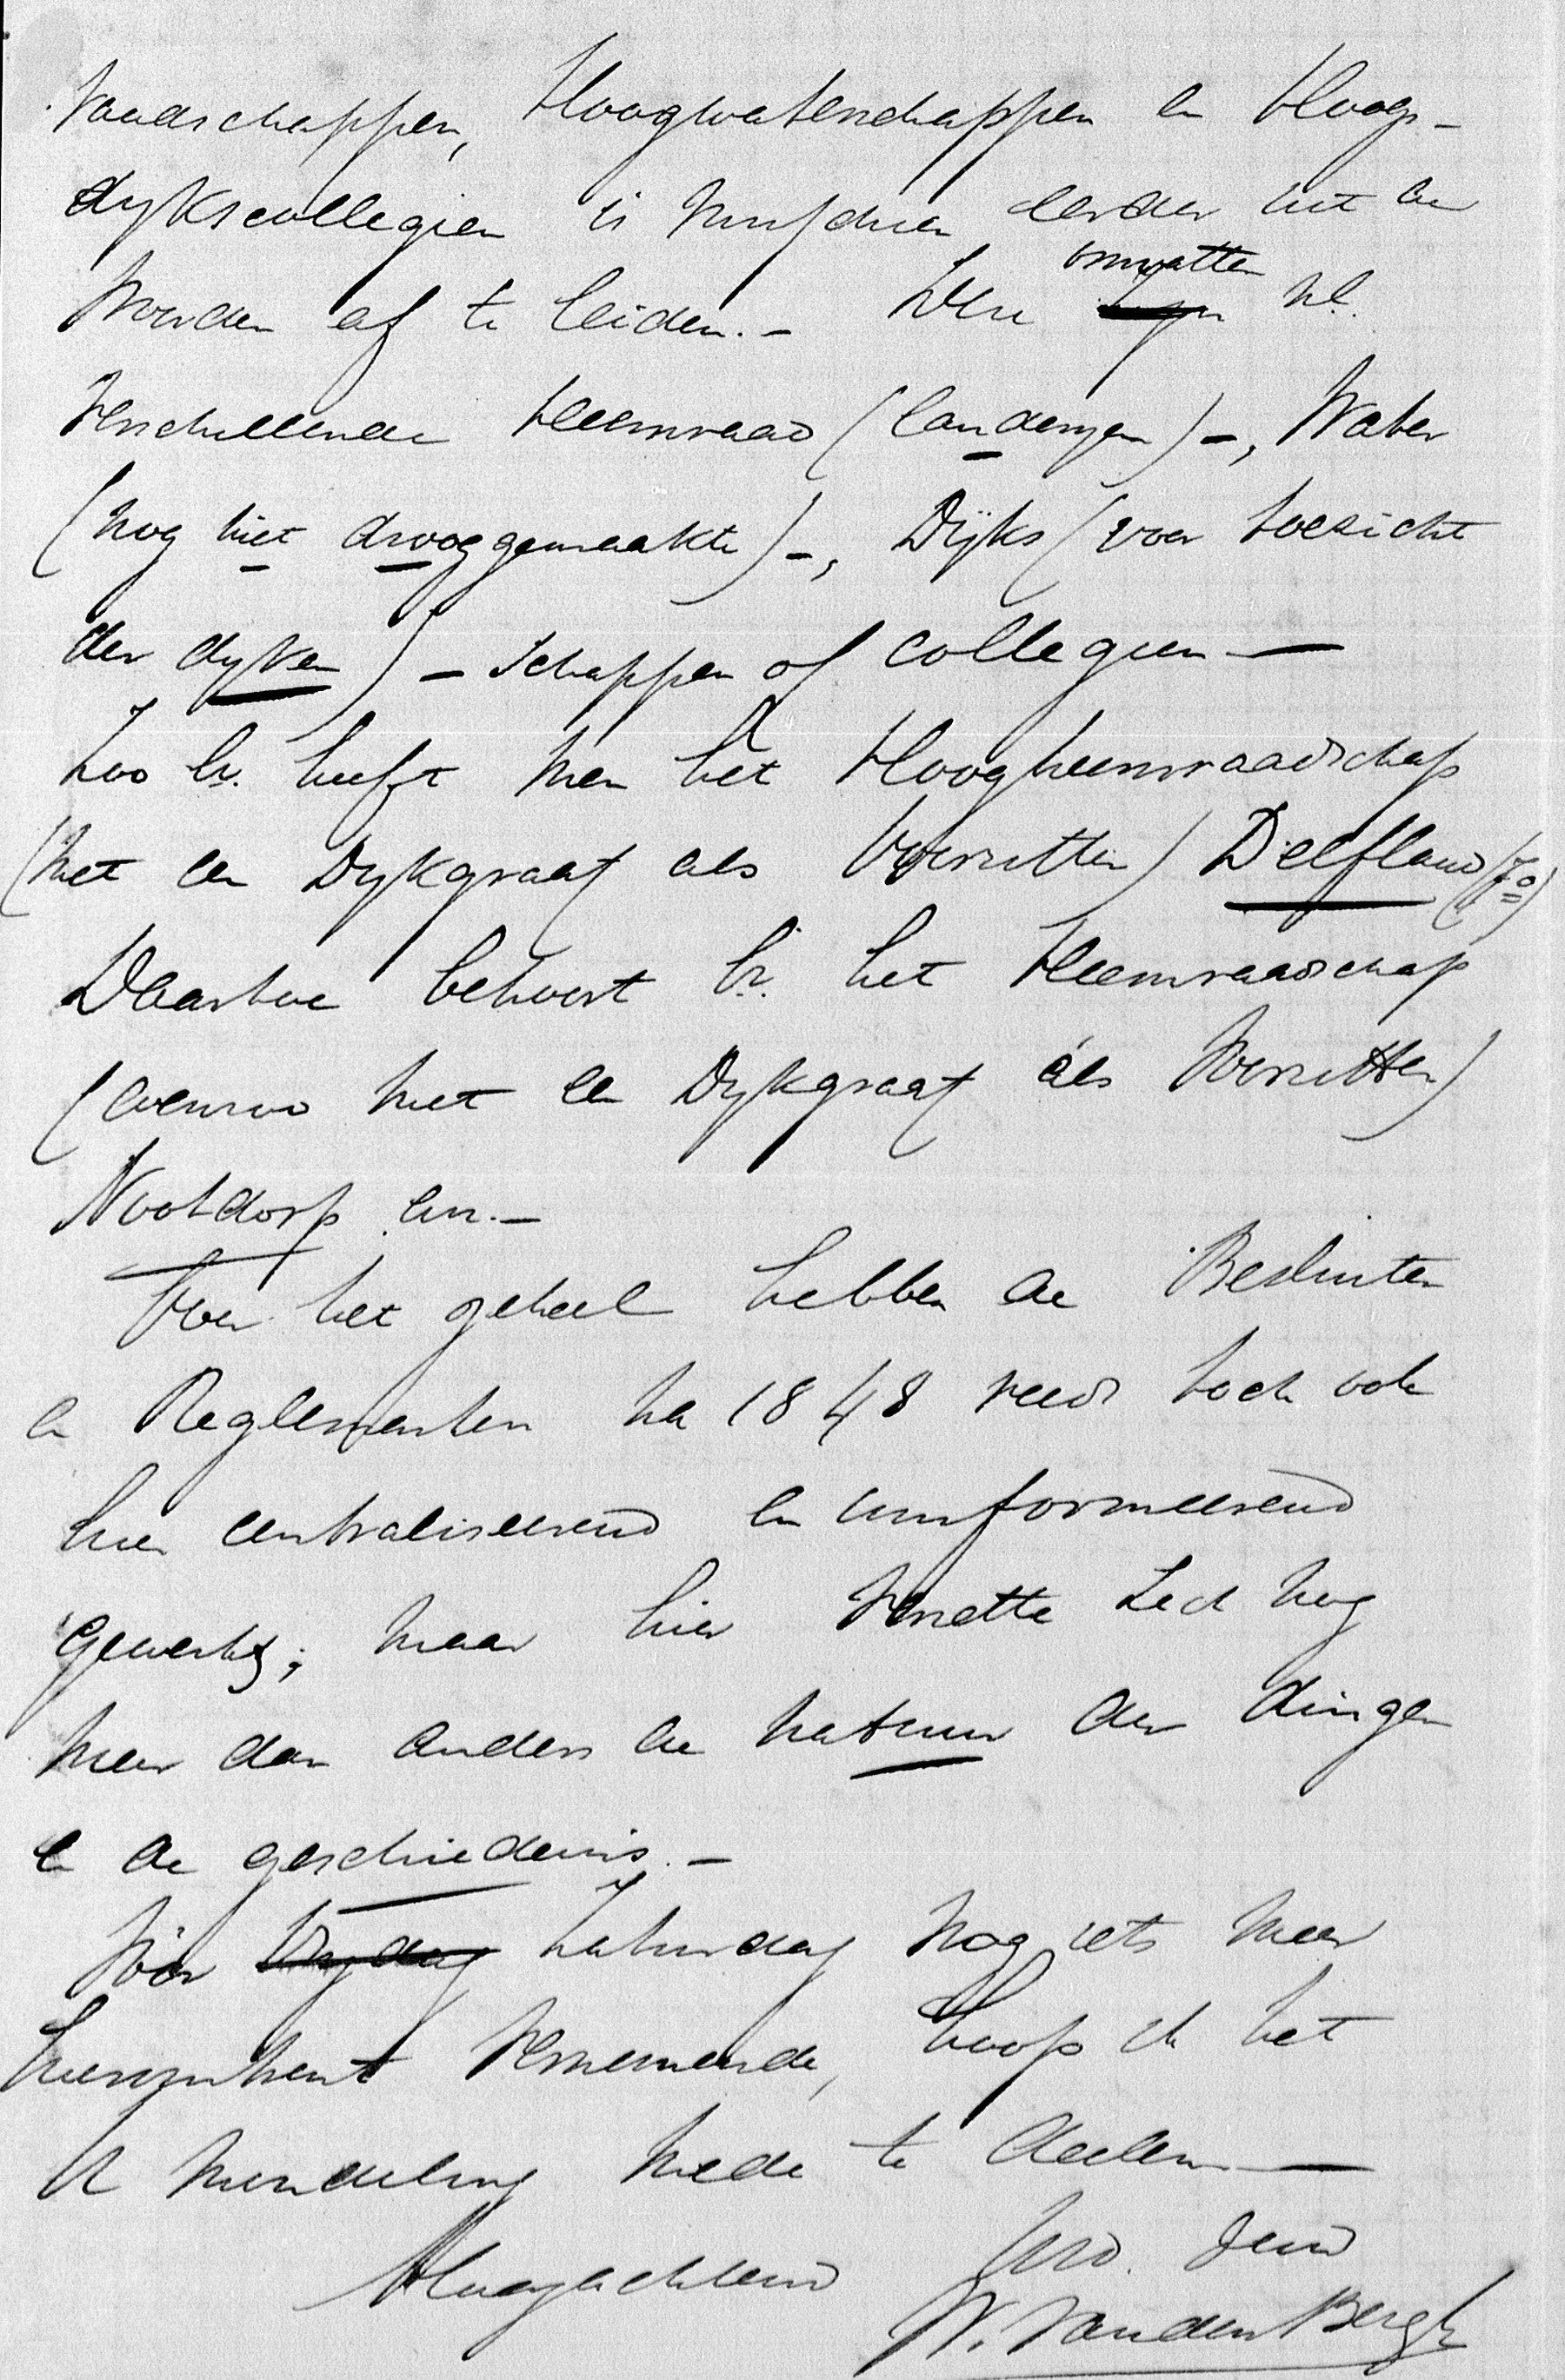 raadschappen, Hoogwaterschappen en Hoog-
dykscollegien is misschien eerder uit de
woorden af te leiden. – Deze omvatten nl.
verschillende Heemraad (landerijen) –, Water
(nog niet drooggemaakte) –, Dijks (voor toezicht
der dyken) – schappen of collegien –
Zoo bv. heeft men het Hoogheemraadschap
(met een Dykgraaf als Voorzitter) Delfland (70)
Daartoe behoort bv. het Heemraadschap
(evenzoo met een Dykgraaf als Voorzitter)
Nootdorp enz. –
Over het geheel hebben de Besluiten
en Reglementen na 1848 reeds toch ook
hier centraliseerend en uniformeerend
gewerkt; maar hier verzette zich nog
meer dan anders de natuur der dingen
en de geschiedenis. –
Vóór Vrydag Zaturdag nog iets meer
hieromtrent vernemende, hoop ik het
U mondeling mede te deelen –
Hoogachtend Uwd. Dend
W. van den Bergh